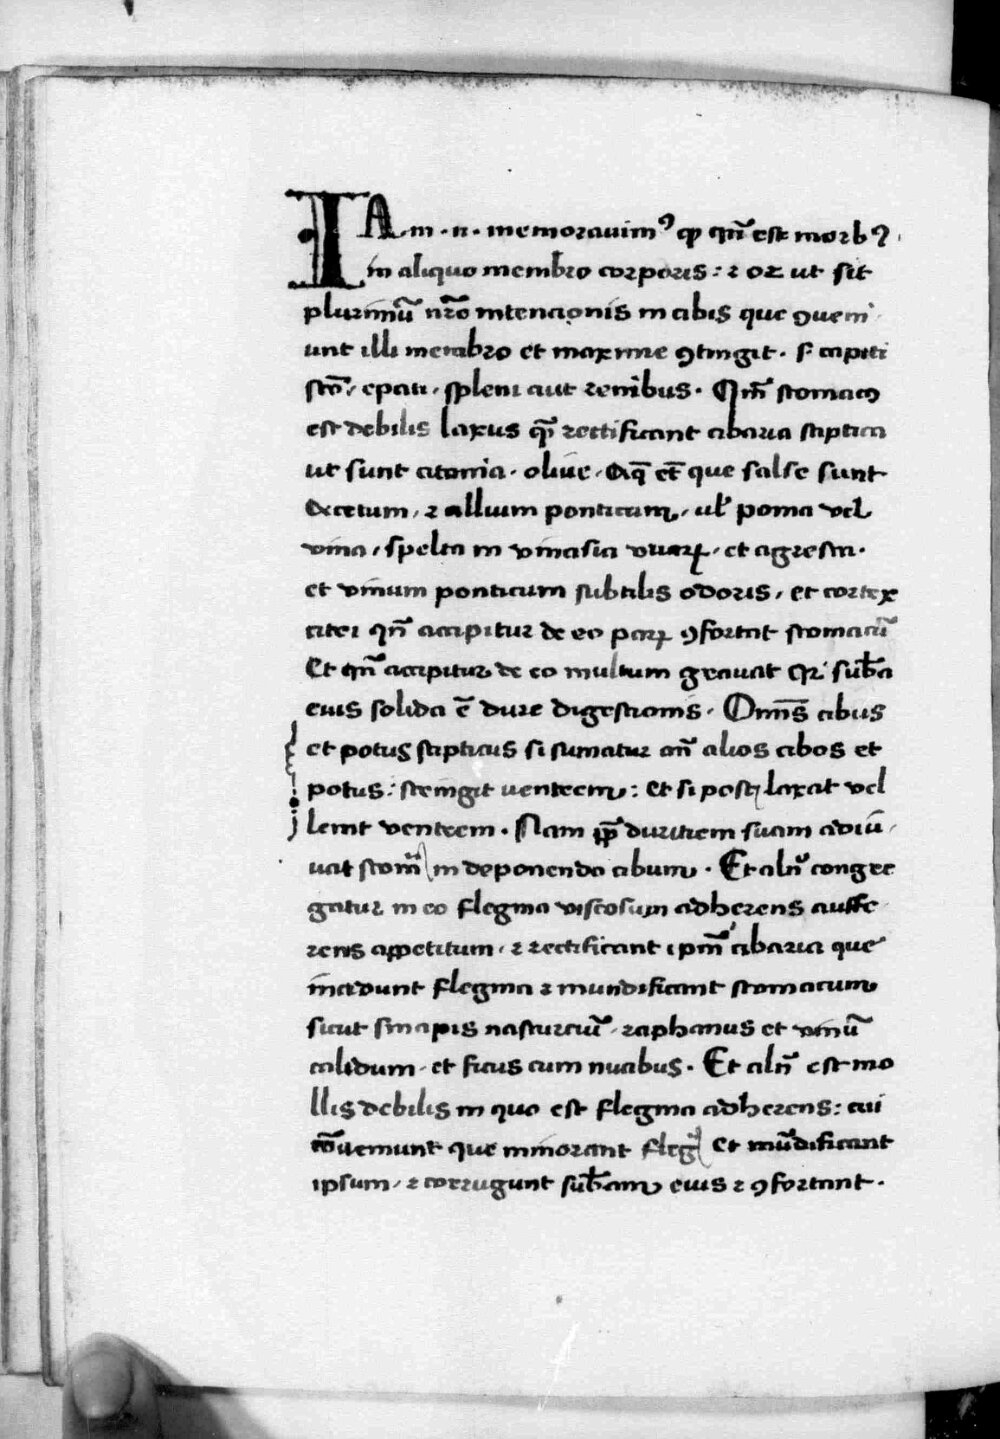 IAm · n · memorauimꝰ ꝙ qn̄ est morbꝰ
in aliquo membro corporis : ⁊ oꝫ ut sit
plurimū nr̄o intencionis in cibis que ꝯueni
unt illi membro et maxime ꝯtingit · s̄ capiti
sto᷑ , epati , spleni aut renibus · Qm̄ stomacꝰ
est debilis laxus qr̄ rectificant cibaria stiptica
ut sunt citonia · oliue , et que salse sunt
Acetum , ⁊ allium ponticum , ul' poma vel
vina , spelta in vinasia vuarꝝ , et agresta .
et vinum ponticum subtilis odoris , et cortex
citri qn̄ accipitur de eo parꝝ ꝯfortat stomacū
Et qn̄ accipitur de eo multum grauat qr̄ sub̄a
eius solida ē dure digestionis . Omīs cibus
et potus stipticus si sumatur an̄ alios cibos et
potus : stringit uentrem : et si post laxat vel
lenit ventrem . Nam ꝓp̄ duritiem suam adiu
uat stom̄ in deponendo cibum . Et aln̄ congre
gatur in eo flegma viscosum adherens auffe
rens appetitum , ⁊ rectificant ipm̄ cibaria que
incidunt flegma ⁊ mundificant stomacum
sicut sinapis nasturciū , raphanus et vinū
calidum , et ficus cum nucibus . Et aln̄ est mo
llis debilis in quo est flegma adherens : cui
cōueniunt que minorant fleḡ Et mūdificant
ipsum , ⁊ corrugunt sub̄am eius ⁊ ꝯfortant .